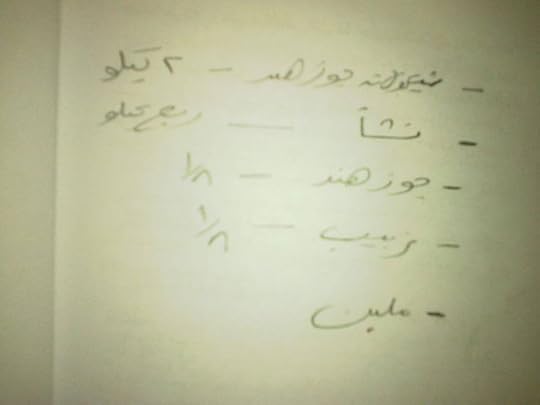 - شيكولاته جوز هند - ٢ كيلو
- نشأ — ربع كيلو
- جوز هند - ١/٨
- زبيب — ١/٨
- ملبن